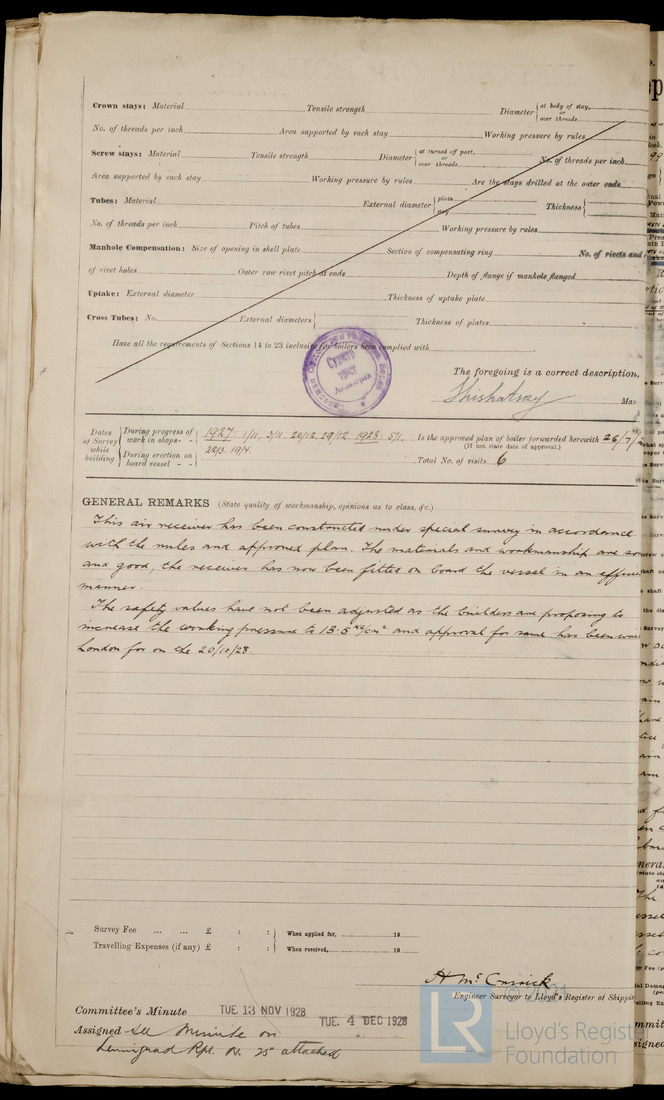 Crown stays: Material Tensile strength Diameter { at body of stay, or over threads
No. of threads per inch Area supported by each stay Working pressure by rules
Screw stays: Material Tensile strength Diameter { at turned off part, or over threads No. of threads per inch
Area supported by each stay Working pressure by rules Are the stays drilled at the outer ends
Tubes: Material External diameter { plain stay Thickness {
No. of threads per inch Pitch of tubes Working pressure by rules
Manhole Compensation: Size of opening in shell plate Section of compensating ring No. of rivets and
of rivet holes Outer row rivet pitch at ends Depth of flange if manhole flanged
Uptake: External diameter Thickness of uptake plate
Cross Tubes: No. External diameters { Thickness of plates
Have all the requirements of Sections 14 to 23 inclusive for boilers been complied with
The foregoing is a correct description,
Dates of Survey while building
During progress of work in shops - - 1927: 1/11, 3/11. 20/12. 29/12. 1928: 5/1.
22/3. 19/4.
During erection on board vessel - -
Is the approved plan of boiler forwarded herewith 26/7/
(If not state date of approval.)
Total No. of visits 6
GENERAL REMARKS (State quality of workmanship, opinions as to class, &c.)
This air receiver has been constructed under special survey in accordance
with the rules and approved plan. The materials and workmanship are
and good, the receiver has now been fitted on board the vessel in an
manner.
The safety valves have not been adjusted as the builders are proposing to
increase the working pressure to 13.5 kg/cm² and approval for same has been
London for on the 20/10/28.
Survey Fee ... ... £ : : } When applied for, 19
Travelling Expenses (if any) £ : : } When received, 19
Engineer Surveyor to Lloyd's Register of Shipping
Committee's Minute TUE. 13 NOV 1928 TUE. 4 DEC 1928
Assigned See Minute on
Leningrad Rpt. No. 25 attached
© 2021
LR
Lloyd's Register
Foundation